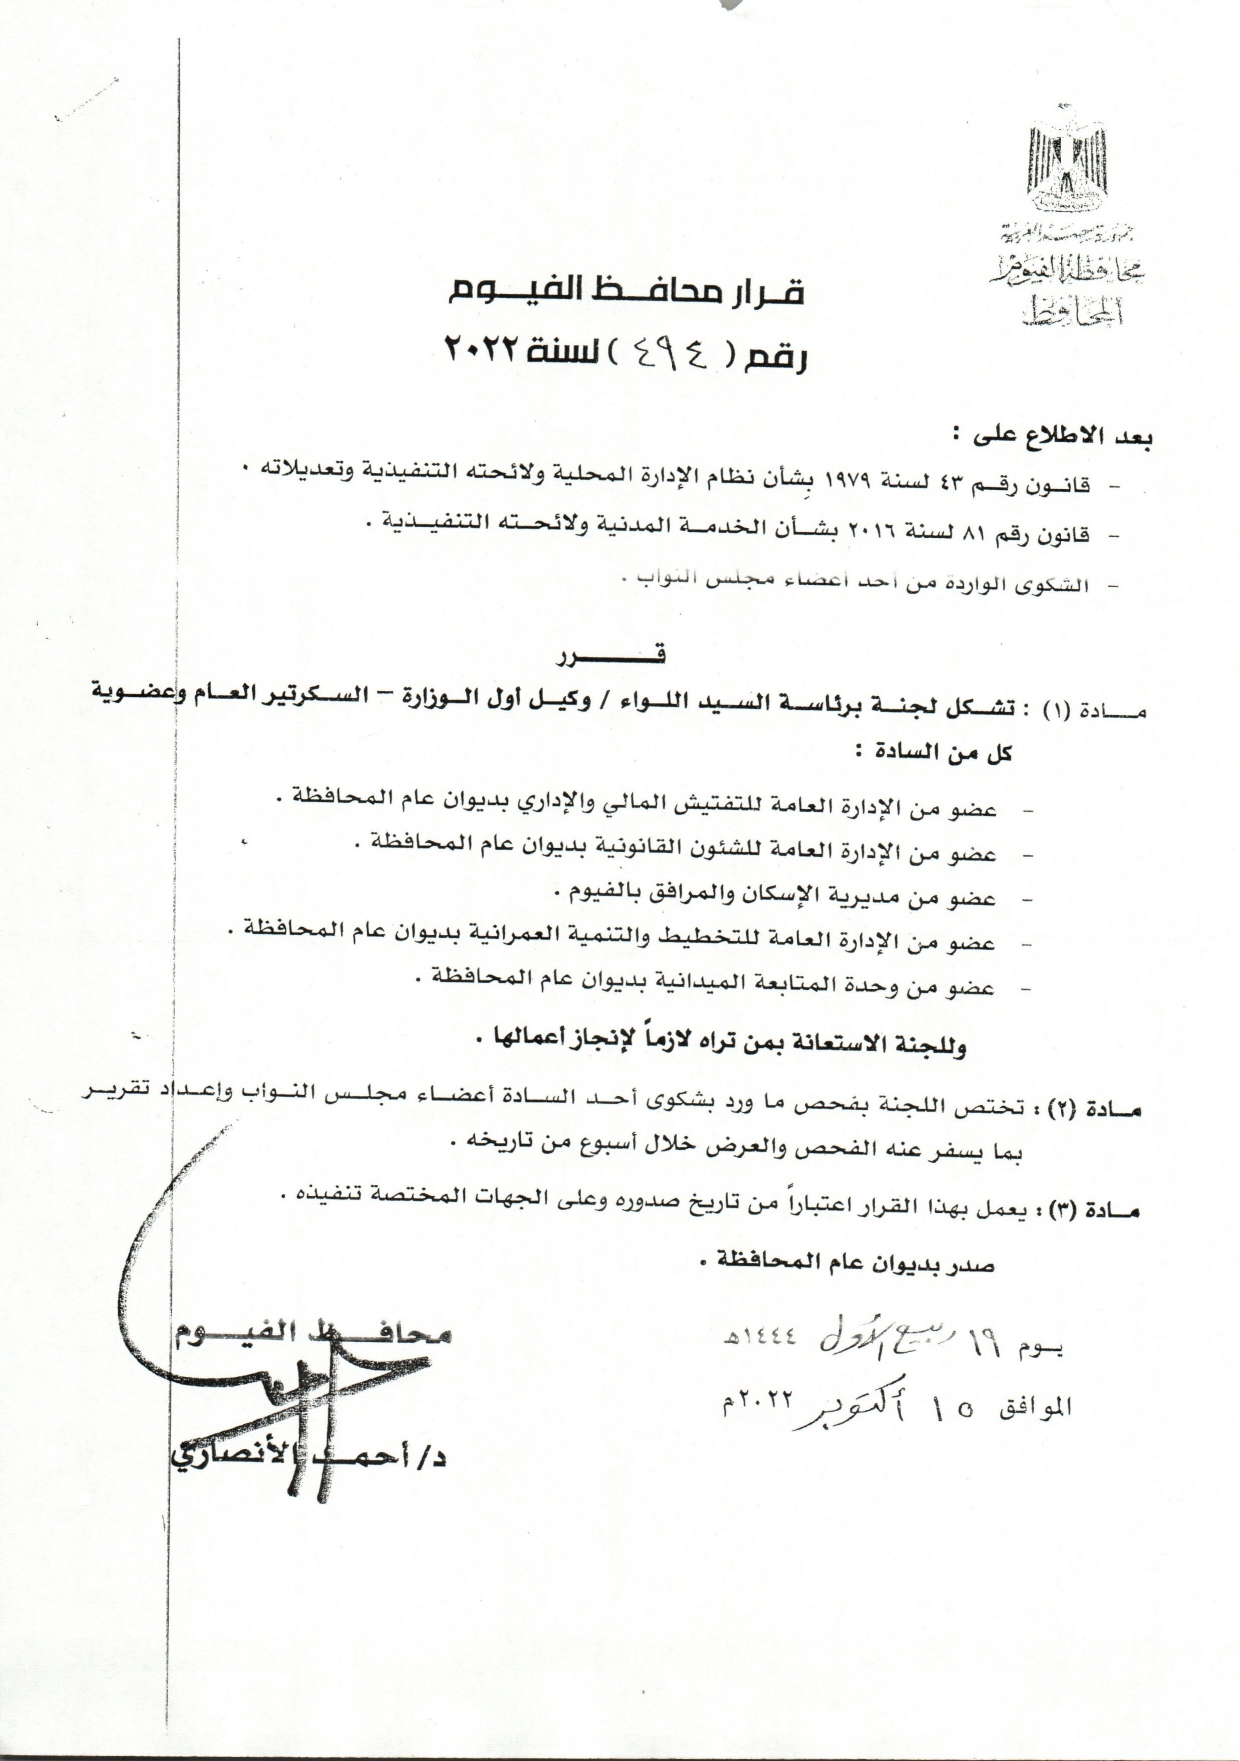 جمهورية مصر العربية
محافظة الفيوم
المحافظ
قرار محافظ الفيوم
رقم ( ٤٩٤ ) لسنة ٢٠٢٢
بعد الاطلاع على :
- قانون رقم ٤٣ لسنة ١٩٧٩ بشأن نظام الإدارة المحلية ولائحته التنفيذية وتعديلاته .
- قانون رقم ٨١ لسنة ٢٠١٦ بشأن الخدمة المدنية ولائحته التنفيذية .
- الشكوى الواردة من أحد أعضاء مجلس النواب .
قرر
مادة (١) : تشكل لجنة برئاسة السيد اللواء / وكيل أول الوزارة – السكرتير العام وعضوية
كل من السادة :
- عضو من الإدارة العامة للتفتيش المالي والإداري بديوان عام المحافظة .
- عضو من الإدارة العامة للشئون القانونية بديوان عام المحافظة .
- عضو من مديرية الإسكان والمرافق بالفيوم .
- عضو من الإدارة العامة للتخطيط والتنمية العمرانية بديوان عام المحافظة .
- عضو من وحدة المتابعة الميدانية بديوان عام المحافظة .
وللجنة الاستعانة بمن تراه لازماً لإنجاز أعمالها .
مادة (٢) : تختص اللجنة بفحص ما ورد بشكوى أحد السادة أعضاء مجلس النواب وإعداد تقرير
بما يسفر عنه الفحص والعرض خلال أسبوع من تاريخه .
مادة (٣) : يعمل بهذا القرار اعتباراً من تاريخ صدوره وعلى الجهات المختصة تنفيذه .
صدر بديوان عام المحافظة .
يوم ١٩ ربيع الأول ١٤٤٤هـ
الموافق ١٥ أكتوبر ٢٠٢٢م
محافظ الفيوم
د/ أحمد الأنصاري